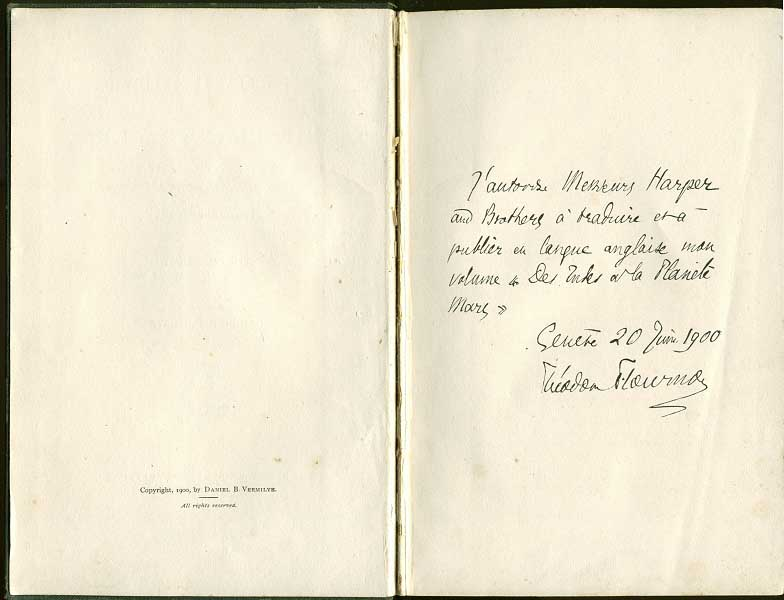 Copyright, 1900, by DANIEL B. VERMILYE.
All rights reserved.
J'autorise Messieurs Harper
and Brothers à traduire et à
publier en langue anglaise mon
volume « Des Indes à la Planète
Mars »
Genève 20 Juin 1900
Théodore Flournoy